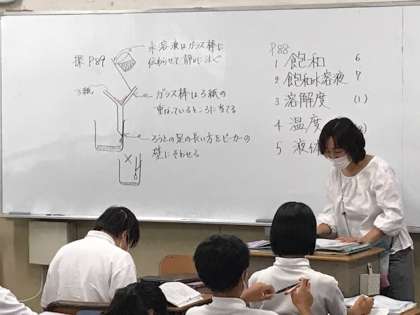 P89
水溶液はガラス棒に
伝わらせて静かに注ぐ
ろ紙
ガラス棒はろ紙の
重なっているところに当てる
ろうとの足の長い方をビーカーの
壁にそわせる
P88
1 飽和 6
2 飽和水溶液 7
3 溶解度 (1)
4 温度
5 液体